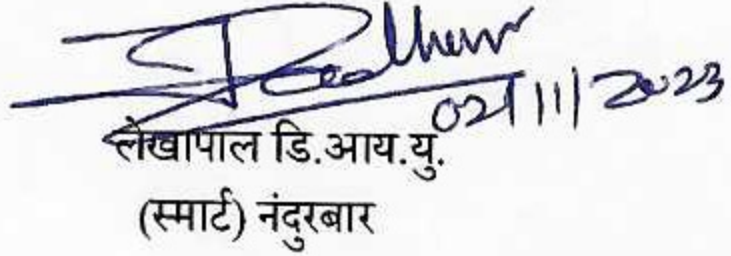 02/11/2023
लेखापाल डि.आय.यु.
(स्मार्ट) नंदुरबार